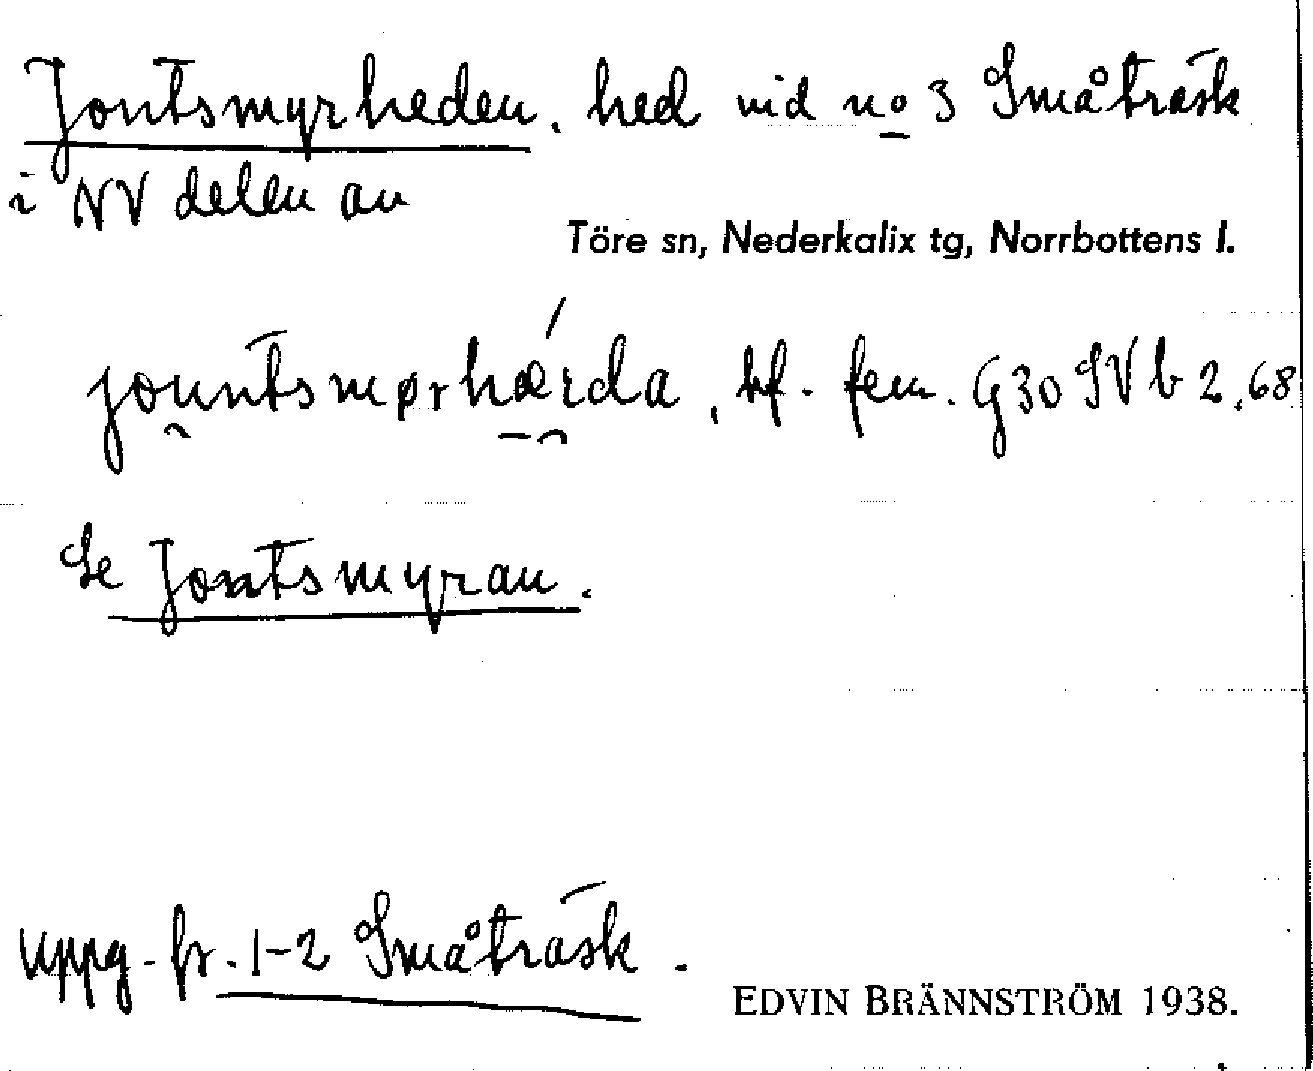 Jontsmyrheden, hed vid no 3 Småträsk
i NV delen av
Töre sn, Nederkalix tg, Norrbottens l.
jountsmørhærda, bf. fem. G30 SV b 2,68
Se Jontsmyran.
Uppg. fr. 1-2 Småträsk.
EDVIN BRÄNNSTRÖM 1938.